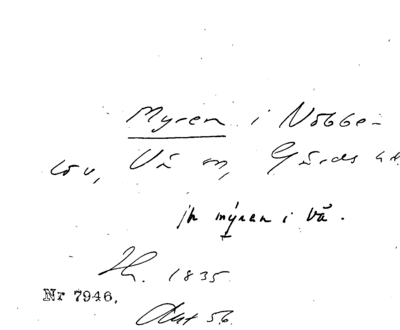 Myren i Nöbbe-
löv, Vä sn, Gärds hd
jh mýren i Vä.
Lh. 1835
Nr 7946.
Akt 56